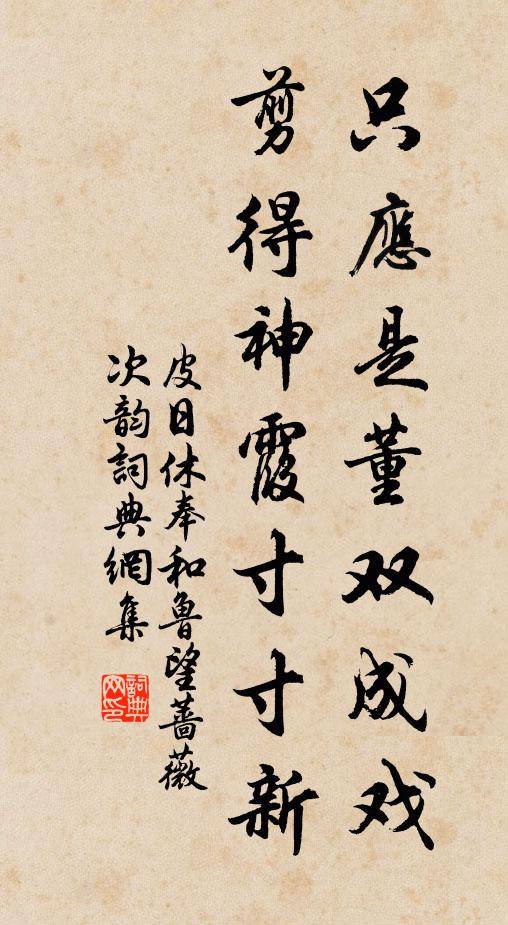 只應是董双成戏
剪得神霞寸寸新
皮日休奉和魯望蔷薇
次韵詞典網集
詞典网印